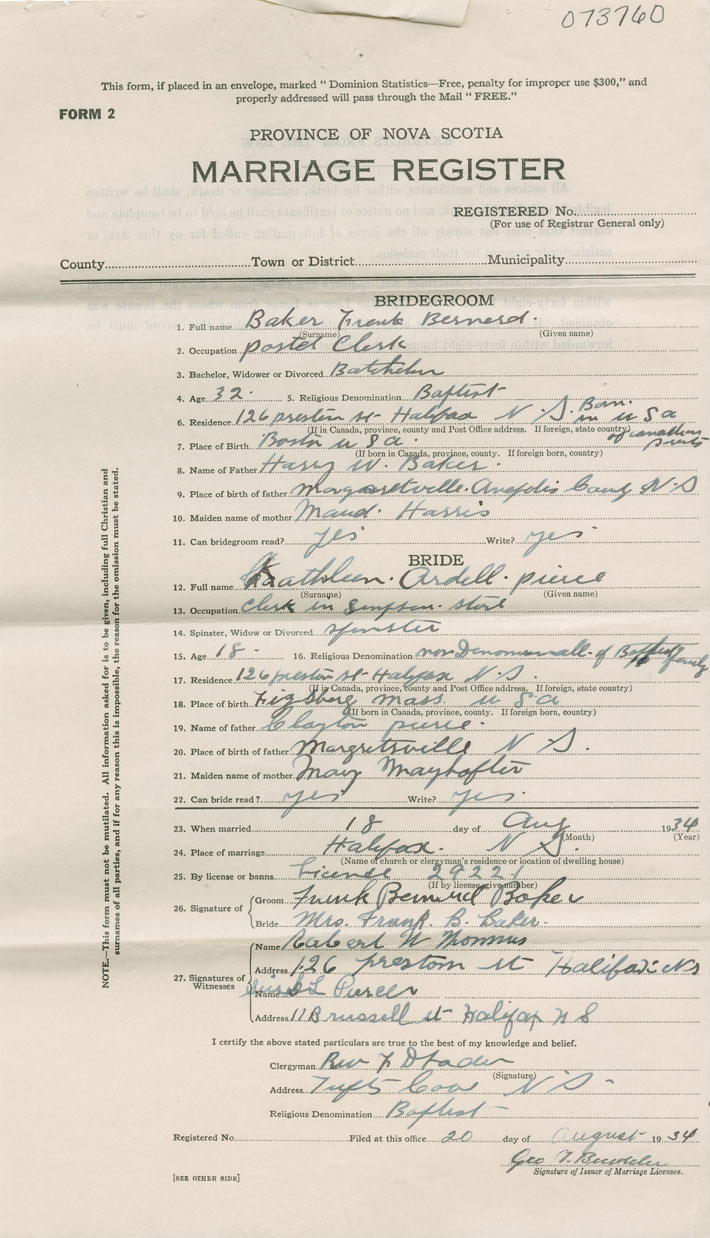 073760
This form, if placed in an envelope, marked " Dominion Statistics—Free, penalty for improper use $300," and
properly addressed will pass through the Mail " FREE."
FORM 2
PROVINCE OF NOVA SCOTIA
MARRIAGE REGISTER
REGISTERED No.
(For use of Registrar General only)
County Town or District Municipality
BRIDEGROOM
1. Full name Baker Frank Bernard.
(Surname) (Given name)
2. Occupation postel Clerk
3. Bachelor, Widower or Divorced Batchelur
4. Age 32. 5. Religious Denomination Baptist
6. Residence 126 preston st- Halifax N.S. Born in U S a of canadian
(If in Canada, province, county and Post Office address. If foreign, state country)
7. Place of Birth Boston U S a.
(If born in Canada, province, county. If foreign born, country)
8. Name of Father Harry W. Baker.
9. Place of birth of father Margaretville. Anaplis County N.S
10. Maiden name of mother Maud Harris
11. Can bridegroom read? yes Write? yes
BRIDE
12. Full name Kathleen. Ardell. pierce
(Surname) (Given name)
13. Occupation Clerk in Simpson. store
14. Spinster, Widow or Divorced spinster
15. Age 18. 16. Religious Denomination non of Baptist family
17. Residence 126 preston st- Halifax N.S.
(If in Canada, province, county and Post Office address. If foreign, state country)
18. Place of birth mass U S a
(If born in Canada, province, county. If foreign born, country)
19. Name of father Clayton pierce.
20. Place of birth of father Margretsville N S.
21. Maiden name of mother Mary
22. Can bride read? yes Write? yes.
23. When married 18 day of Aug 1934
(Month) (Year)
24. Place of marriage Halifax. N S.
(Name of church or clergyman's residence or location of dwelling house)
25. By license or banns License 29221
(If by license give number)
26. Signature of Groom Frank Bernard Baker
Bride Mrs. Frank. B. Baker.
27. Signatures of Witnesses
Name Robert W
Address 126 preston st Halifax NS
Name
Address 11 Brussell st Halifax N S
I certify the above stated particulars are true to the best of my knowledge and belief.
Clergyman Rev
(Signature)
Address Tufts Cove N S -
Religious Denomination Baptist -
Registered No. Filed at this office 20 day of August 1934
Geo
Signature of Issuer of Marriage Licenses.
[SEE OTHER SIDE]
NOTE.—This form must not be mutilated. All information asked for is to be given, including full Christian and
surnames of all parties, and if for any reason this is impossible, the reason for the omission must be stated.